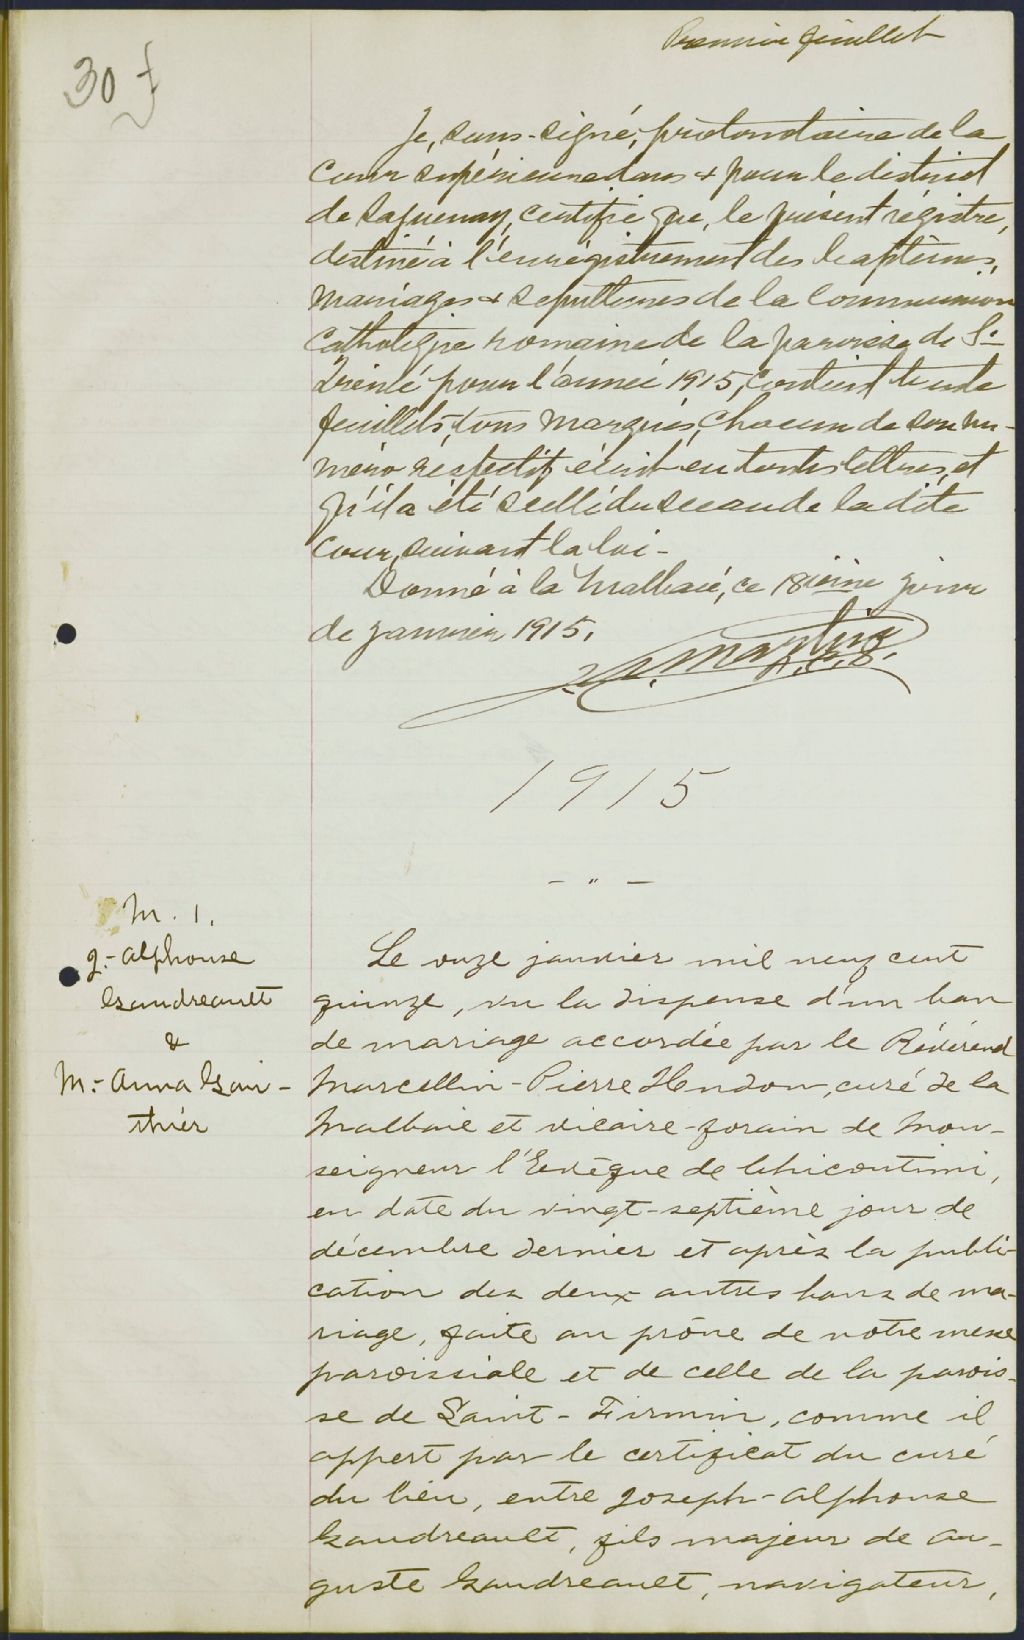 Premier feuillet
30 f
Je, sous-signé, protonotaire de la
Cour supérieure dans & pour le district
de Saguenay, certifie que, le présent régistre,
destiné à l'enrégistrement des baptêmes,
mariages & sepultures de la Communion
Catholique romaine de la paroisse de St-
Irénée pour l'année 1915, contient trente
feuillets, tous marqués, chacun de son nu-
méro respectif écrit en toutes lettres, et
qu'il a été scellé du sceau de la dite
Cour, suivant la loi -
Donné à la Malbaie, ce 18ième jour
de janvier 1915.
Martin
P.C.S.
1915
- " -
M. 1.
J.- Alphonse
Gaudreault
&
M.- Anna Gau-
thier
Le onze janvier mil neuf cent
quinze, vu la dispense d'un ban
de mariage accordée par le Révérend
Marcellin-Pierre Hudon, curé de la
Malbaie et vicaire-forain de Mon-
seigneur l'Evêque de Chicoutimi,
en date du vingt-septième jour de
décembre dernier et après la publi-
cation des deux autres bans de ma-
riage, faite au prône de notre messe
paroissiale et de celle de la parois-
se de Saint-Firmin, comme il
appert par le certificat du curé
du lieu, entre Joseph-Alphonse
Gaudreault, fils majeur de Au-
guste Gaudreault, navigateur,